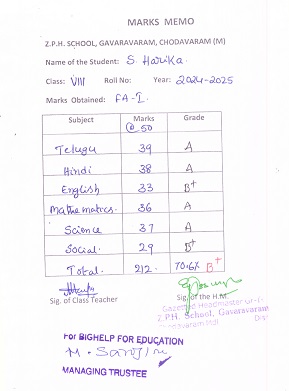 MARKS MEMO
Z.P.H. SCHOOL, GAVARAVARAM, CHODAVARAM (M)
Name of the Student: S. Harika.
Class: VIII Roll No: Year: 2024-2025
Marks Obtained: FA-I.
Subject Marks @ 50 Grade
Telugu 39 A
Hindi 38 A
English 33 B+
Mathematics. 36 A
Science 37 A
Social. 29 B+
Total. 212. 70.6% B+
Sig. of Class Teacher Sig. of the H.M.
Gazetted Headmaster Gr-I
Z.P.H. School, Gavaravaram
Chodavaram (M)
For BIGHELP FOR EDUCATION
MANAGING TRUSTEE